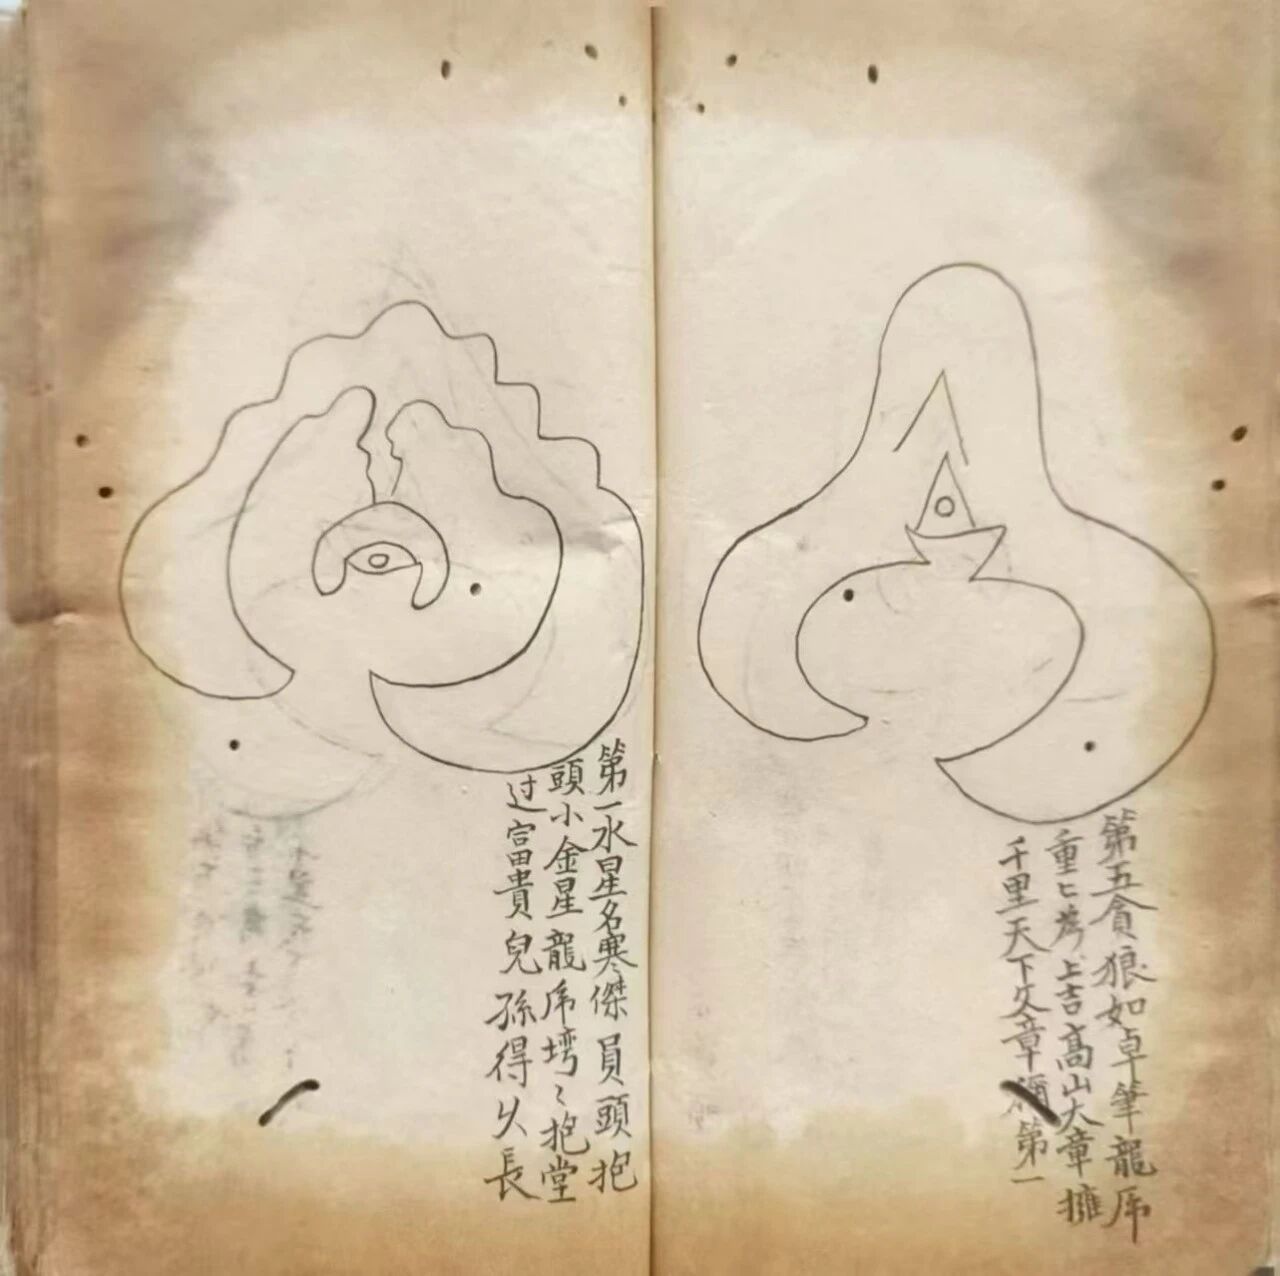 第五貪狼如卓筆龍虎
重〻為上吉高山大章擁
千里天下文章 第一
第一水星名寒傑員頭抱
頭小金星龍虎塆〻抱堂
过富貴兒孫得久長